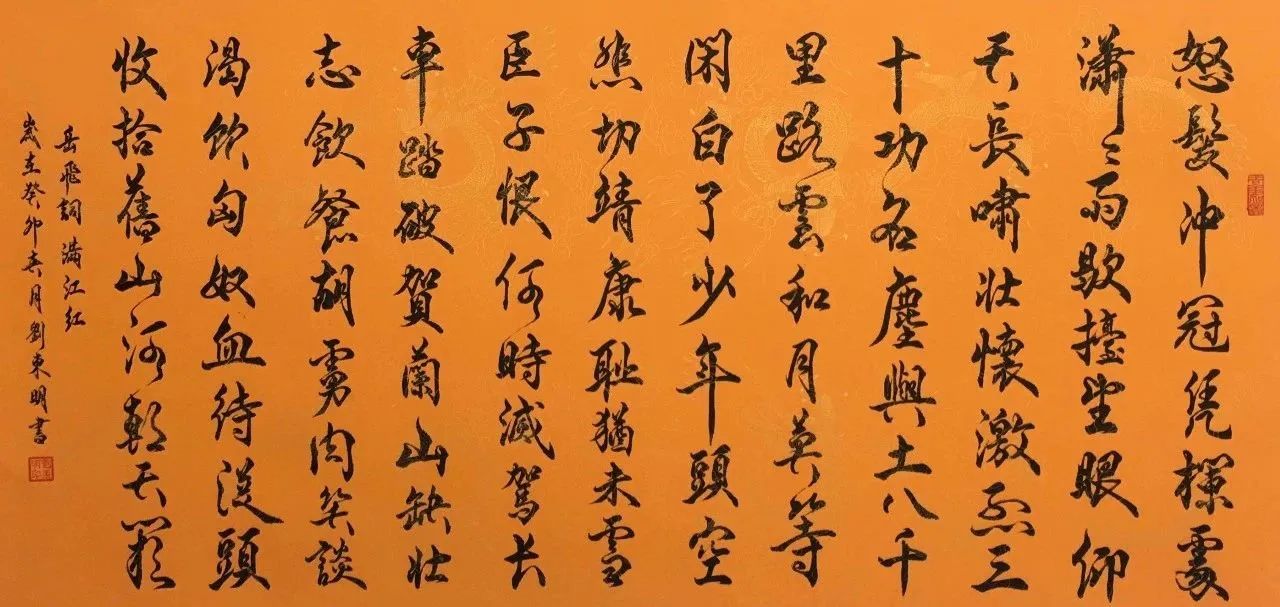 怒髮冲冠凭欄處
瀟々雨歇擡望眼仰
天長嘯壯懷激烈三
十功名塵與土八千
里路雲和月莫等
閑白了少年頭空
悲切靖康耻猶未雪
臣子恨何時滅駕長
車踏破賀蘭山缺壯
志飲餐胡虜肉笑談
渴飲匈奴血待從頭
收拾舊山河朝天闕
岳飛詞滿江紅
歲在癸卯春月劉東明書